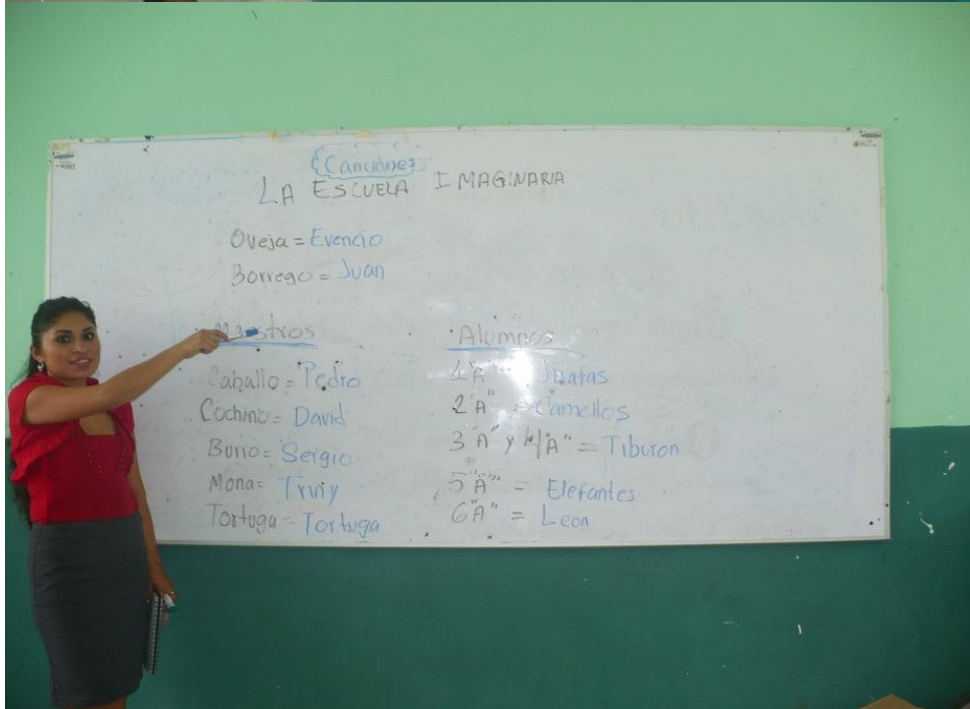 Canciones
LA ESCUELA IMAGINARIA
Oveja = Evencio
Borrego = Juan
Maestros
Caballo = Pedro
Cochino = David
Burro = Sergio
Mona = Triny
Tortuga = Tortuga
Alumnos
1"A" = Jirafas
2"A" = Camellos
3"A" y 4"A" = Tiburon
5"A" = Elefantes
6"A" = Leon